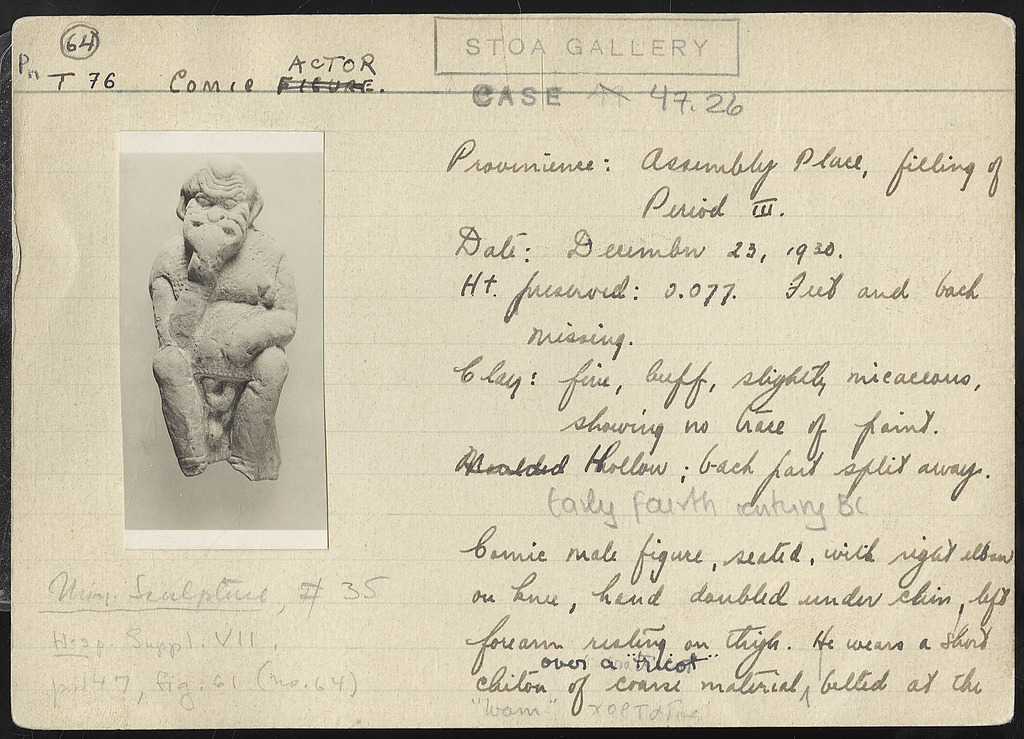 64
Pn T 76 Comic FIGURE. ACTOR
STOA GALLERY
CASE 47.26
Provinience: Assembly Place, filling of
Period III.
Date: December 23, 1930.
Ht. preserved: 0.077. Feet and back
missing.
Clay: fine, buff, slightly micaceous,
showing no trace of paint.
Moulded Hollow; back part split away.
Early fourth century BC
Comic male figure, seated, with right elbow
on knee, hand doubled under chin, left
forearm resting on thigh. He wears a short
over a "tricot"
chiton of coarse material, belted at the
χορταῖος
Min. Sculpture, # 35
Hesp. Suppl. VII,
p. 147, fig. 61 (no. 64)